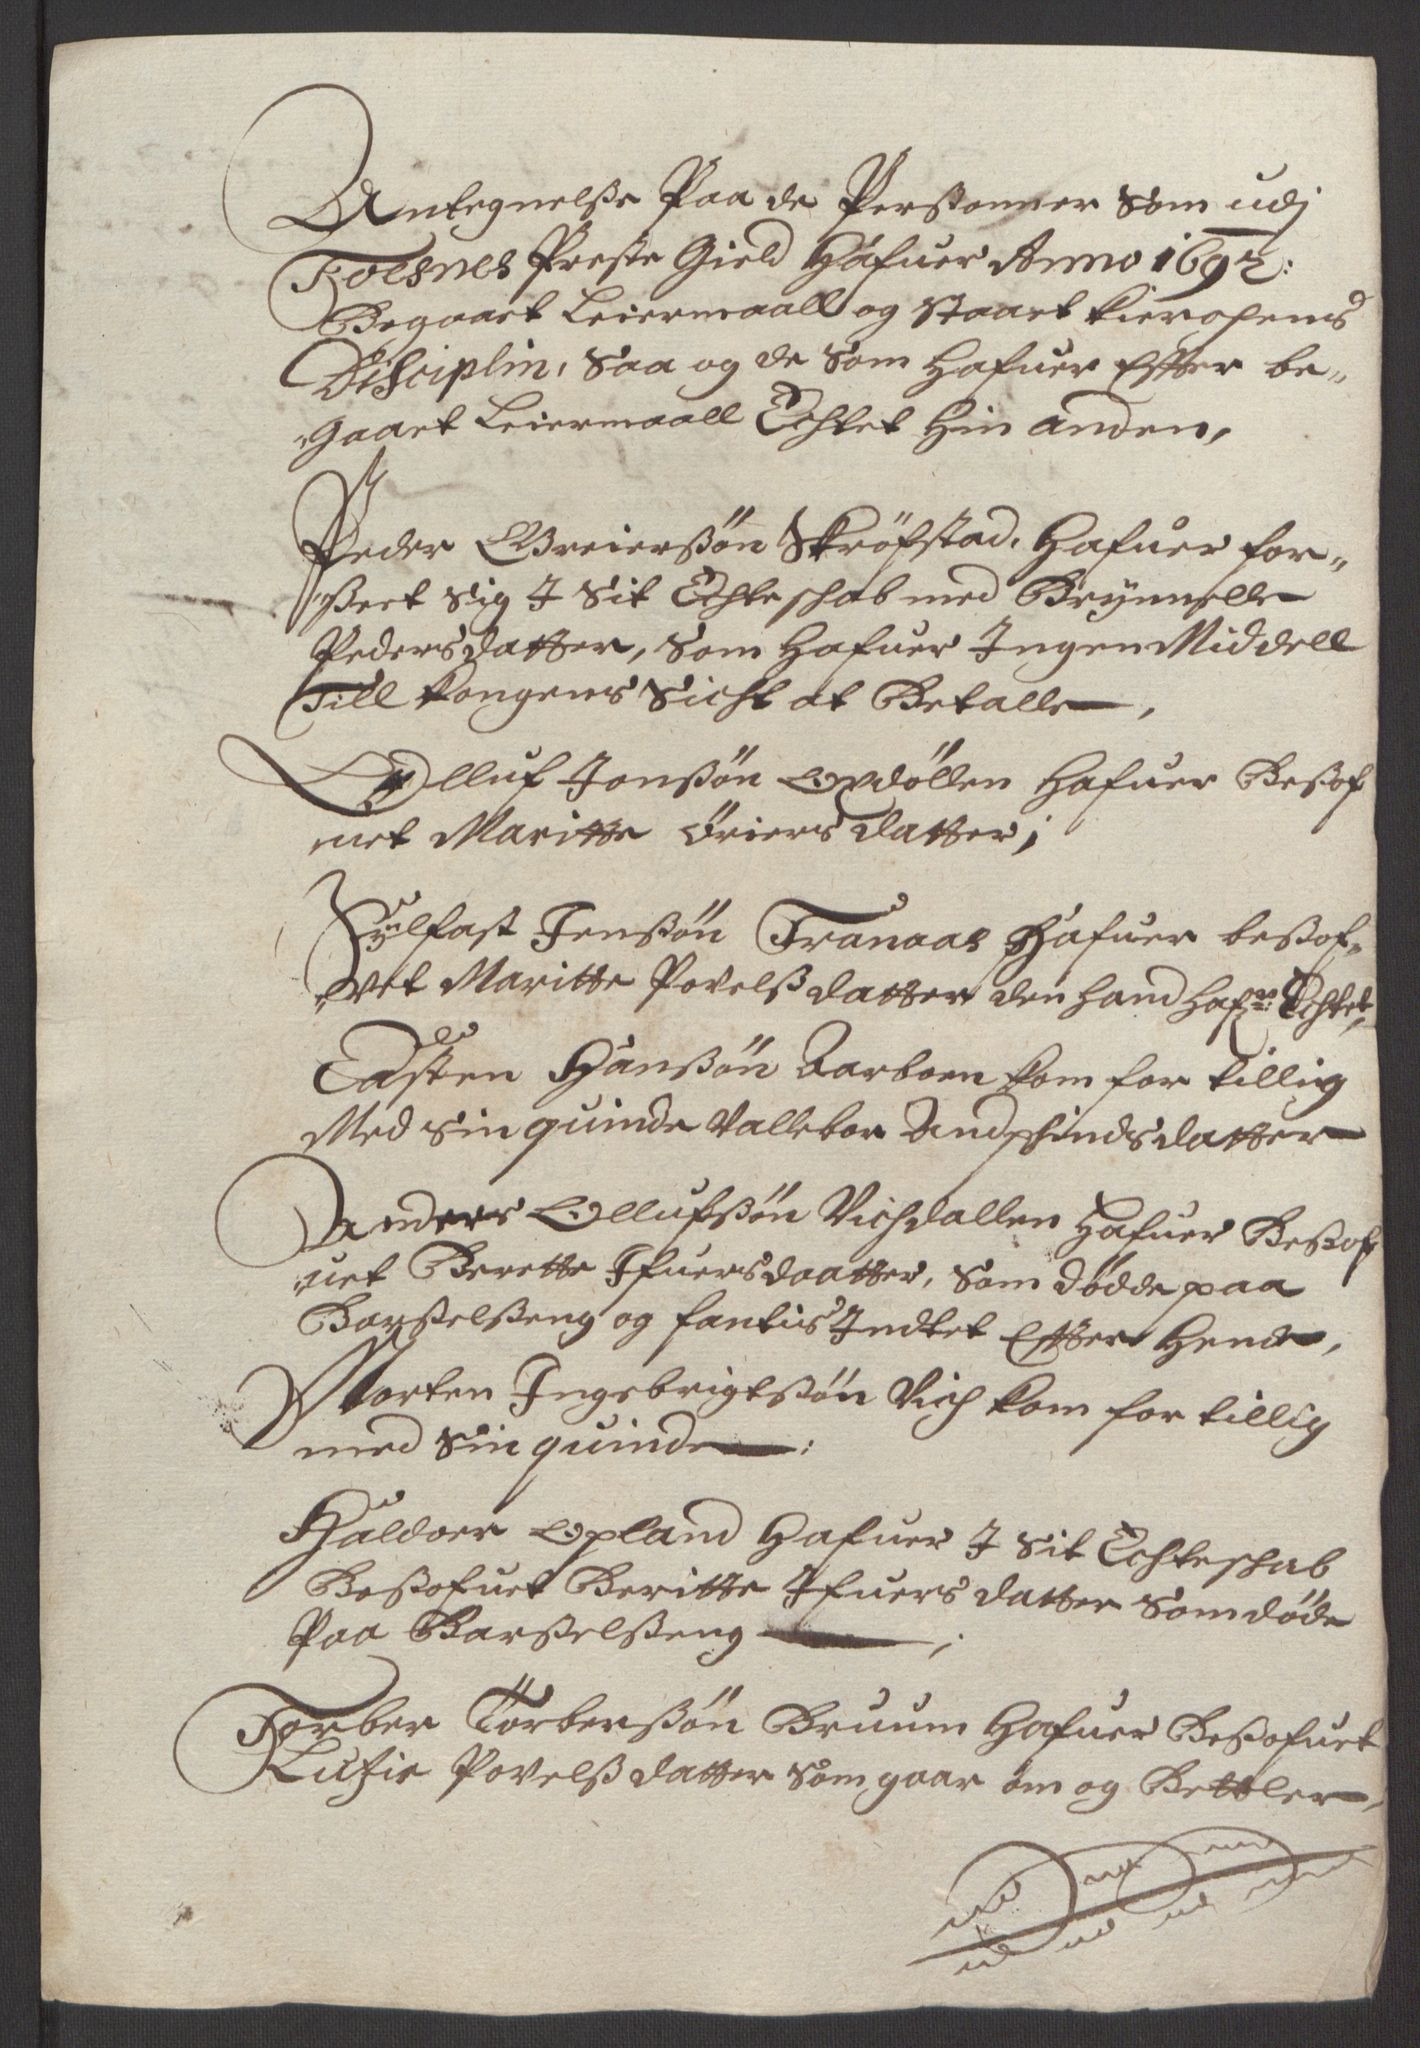 Antegnelsse Paa de Perssonner Som udj
Foesnes Preste Gield Hafuer Anno 1692:
Begaaet Leiermaall og Staaet Kierchens
Disciplin, Saa og de Som Hafuer Effter be„
„gaaet Leiermaall Echtet Hin anden,
Peder Greierssøn Skröfstad, Hafuer for„
„sseet Sig I Sit Echteschab med Brynnelle
Pedersdatter, Som Hafuer Ingen Middell
Till Kongens Sicht at Betalle,
Olluf Jonssøn Opdöllen Hafuer Bessof
uet Maritte Griers datter;
Sylfast Jenssøn Tranaas Hafuer bessof„
„vet Maritte Povelss datter den hand Hafr: Echtet,
Casten Hanssøn Aarboen kom for tillig
Med Sin quinde Vallebor Amdsindsdatter
Anders Ollufssøn Vichdallen Hafuer Bessof
„uet Berette Ifuersdaatter, Som dödde paa
Barsselsseng og fantis Indtet Effter Hende,
Morten Ingebrigtssøn Vich kom for tillig
med Sin quinde:
Haldoer Opland Hafuer I Sit Echteschab
Bessofuet Beritte Ifuers datter Som döde
Paa Barsselsseng;
Torber Törberssøn Bruum Hafuer Bessofuet
Luzie Povelss datter Som gaar om og Bettler,